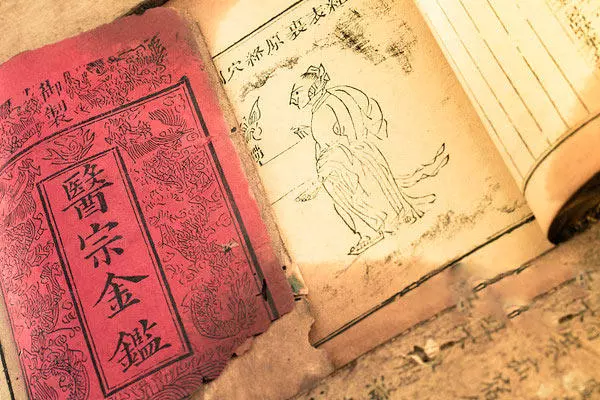 御製
醫宗金鑑
經表裏原絡穴